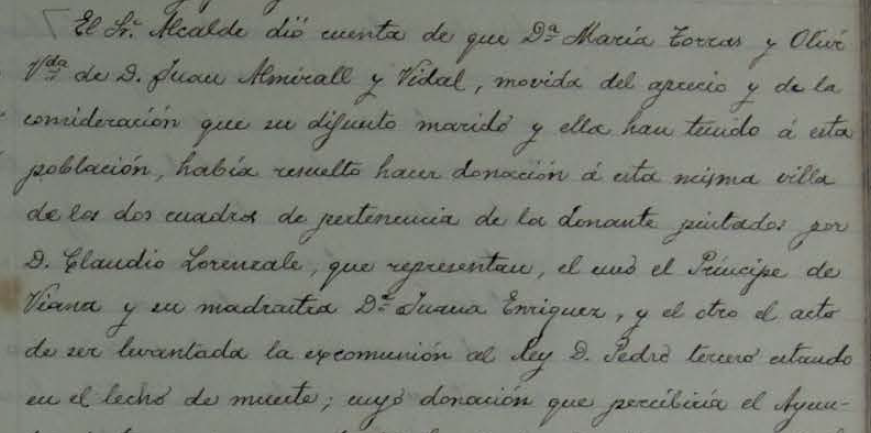 El Sr. Alcalde dió cuenta de que Dª María Torras y Olivé
Vda de D. Juan Almirall y Vidal, movida del aprecio y de la
consideración que su difunto marido y ella han tenido á esta
población, había resuelto hacer donación á esta misma villa
de los dos cuadros de pertenencia de la donante pintados por
D. Claudio Lorenzale, que representan, el uno el Príncipe de
Viana y su madrastra Dª Juana Enriquez, y el otro el acto
de ser levantada la excomunión al Rey D. Pedro tercero estando
en el lecho de muerte; cuya donación que percibiría el Ayun-